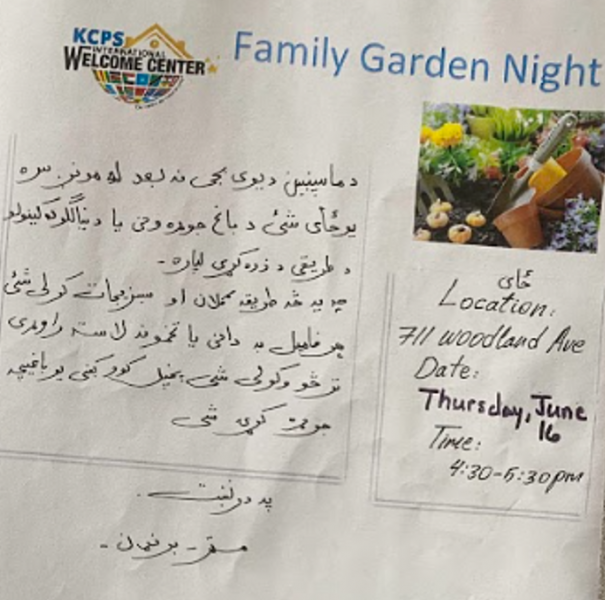 KCPS
INTERNATIONAL
WELCOME CENTER
Family Garden Night
د ماسپښین د یوی بجی نه بعد له مونږ سره
یو ځای شئ د باغ جوړه ونی یا د نیالګو کینولو
د طریقی د زده کړی لپاره -
چه په څه طریقه ګلان او سبزیجات کرلی شئ
هر فامیل به دانی یا تخمونه لاسته راوړی
تر څو وکولی شی پخپل کور کښی یو باغیچه
جوړه کړی شی
په درنښت .
مسټر - برنهمان -
ځای
Location:
711 Woodland Ave
Date:
Thursday, June
16
Time:
4:30-5:30pm